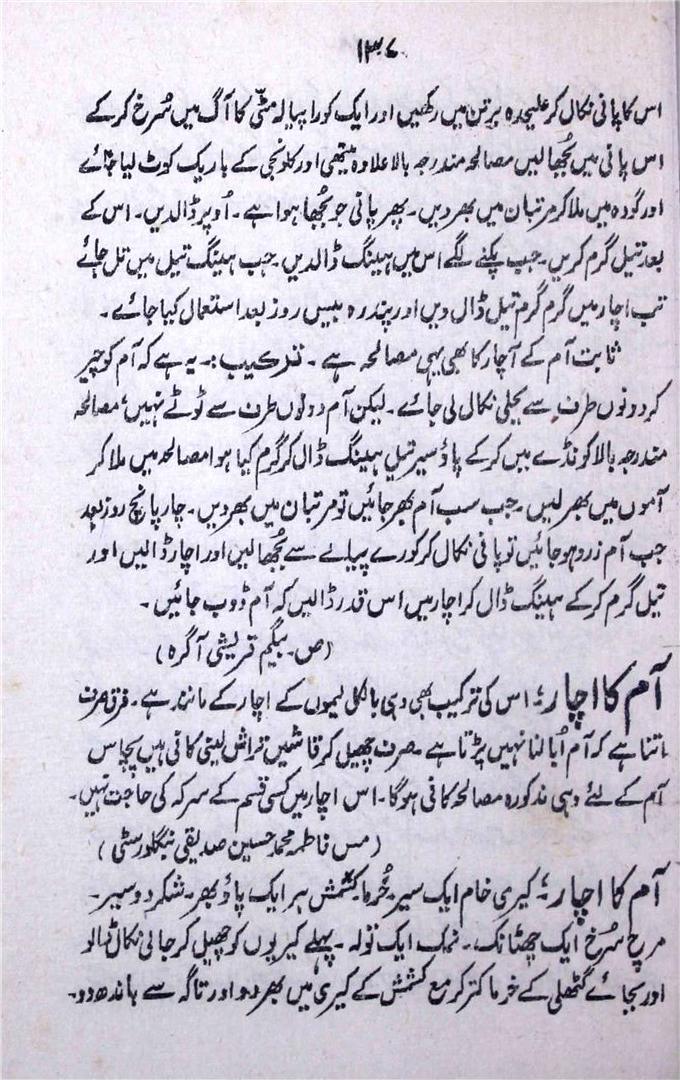 ۱۳۷
اس کا پانی نکال کر علیحدہ برتن میں رکھیں اور ایک کورا پیالہ مٹی کا آگ میں سُرخ کر کے
اس پانی میں بُجھا لیں مصالحہ مندرجہ بالا علاوہ میتھی اور کلونجی کے باریک کوٹ لیا جائے
اور گودہ میں ملا کر مرتبان میں بھر دیں۔ پھر پانی جو بُجھا ہوا ہے۔ اُوپر ڈالدیں۔ اس کے
بعد تیل گرم کریں۔ جب پکنے لگے اس میں ہینگ ڈالدیں۔ جب ہینگ تیل میں تل جائے
تب اچار میں گرم گرم تیل ڈال دیں اور پندرہ بیس روز بعد استعمال کیا جائے۔
ثابت آم کے آچار کا بھی یہی مصالحہ ہے۔ ترکیب:۔ یہ ہے کہ آم کو چیر
کر دونوں طرف سے بجلی نکال لی جائے۔ لیکن آم دونوں طرف سے ٹوٹے نہیں، مصالحہ
مندرجہ بالا کونڈے میں کر کے پاؤ سیر تیل ہینگ ڈال کر گرم کیا ہوا مصالحہ میں ملا کر
آموں میں بھر لیں۔ جب سب آم بھر جائیں تو مرتبان میں بھر دیں۔ چار پانچ روز بعد
جب آم زرد ہو جائیں تو پانی نکال کر کورے پیالے سے بُجھا لیں اور اچار ڈالیں اور
تیل گرم کر کے ہینگ ڈال کر اچار میں اس قدر ڈالیں کہ آم ڈوب جائیں۔
(ص۔ بیگم قریشی آگرہ)
آم کا اچار:۔ اس کی ترکیب بھی وہی بالکل لیموں کے اچار کے مانند ہے۔ فرق صرف
اتنا ہے کہ آم اُبالنا نہیں پڑتا ہے۔ صرف چھیل کر قاشیں تراش لینی کافی ہیں پچاس
آم کے لئے وہی مذکورہ مصالحہ کافی ہوگا۔ اس اچار میں کسی قسم کے سرکہ کی حاجت نہیں۔
(مس فاطمہ محمد حسین صدیقی بنگلور سٹی)
آم کا اچار:۔ کیری خام ایک سیر۔ خُرما۔ کشمش ہر ایک پاؤ بھر۔ شکر دو سیر۔
مرچ سُرخ ایک چھٹانک۔ نمک ایک تولہ۔ پہلے کیریوں کو چھیل کر جالی نکال ڈالو
اور بجائے گٹھلی کے خرما کتر کر مع کشمش کے کیری میں بھر دو اور تاگہ سے باندھ دو۔